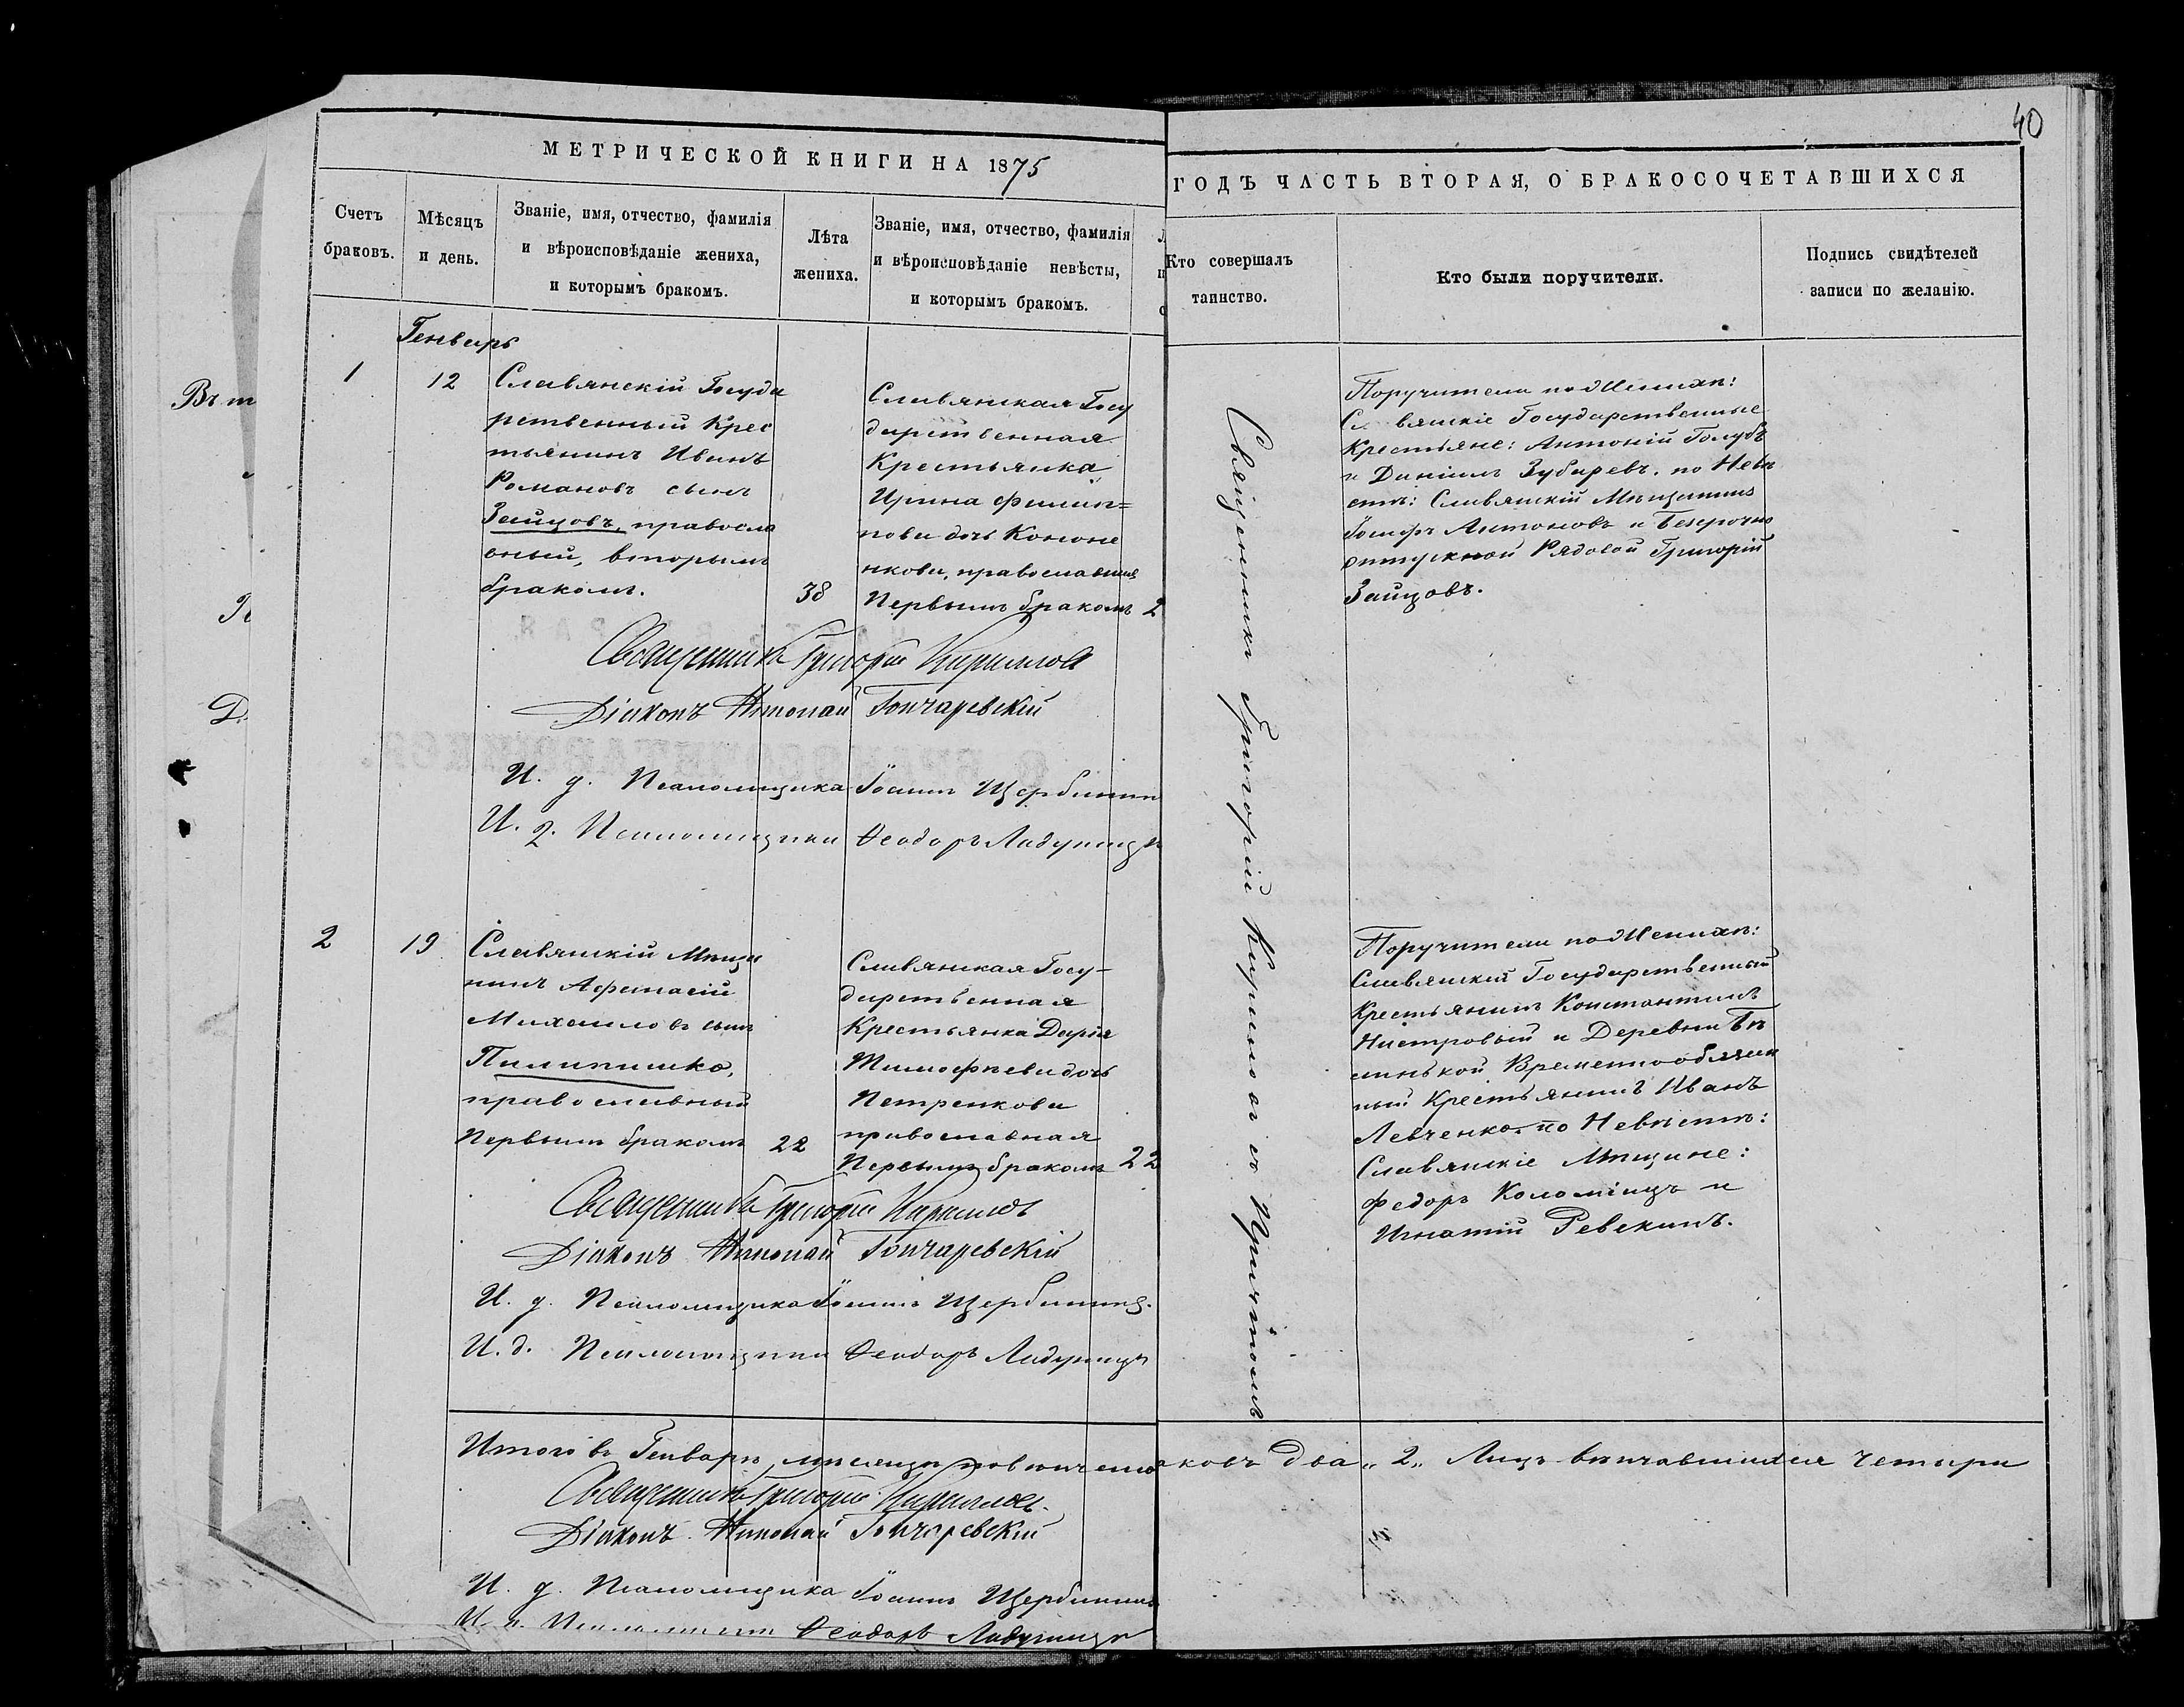 40
МЕТРИЧЕСКОЙ КНИГИ НА 1875
ГОДЪ ЧАСТЬ ВТОРАЯ, О БРАКОСОЧЕТАВШИХСЯ
Счетъ
браковъ.
Мѣсяцъ
и день.
Званіе, имя, отчество, фамилія
и вѣроисповѣданіе жениха,
и которымъ бракомъ.
Лѣта
жениха.
Званіе, имя, отчество, фамилія
и вѣроисповѣданіе невѣсты,
и которымъ бракомъ.
Кто совершалъ
таинство.
Кто были поручители.
Подпись свидѣтелей
записи по желанію.
Генварь
1
12
Славянскій Госуда
рственный Крес
тьянинъ Иванъ
Романовъ сынъ
Зайцовъ, правосла
вный, вторымъ
бракомъ.
38
Славянская Госу
дарственная
Крестьянка
Ирина Филип=
пова дочь Кононе
нкова, православная
Первымъ бракомъ
2
Священникъ Григорій Кирилловъ съ Причтомъ
Поручители по Женихѣ:
Славянскіе Государственные
Крестьяне: Антоній Голубъ
и Даніилъ Зубаревъ. по Невѣ
стѣ: Славянскій Мѣщанинъ
Іосифъ Антоновъ и Безсрочно
отпускной Рядовой Григорій
Зайцовъ.
Священникъ Григорій Кирилловъ
Діаконъ Николай Гончаревскій
И. д. Псаломщика Іоаннъ Щербининъ
И. д. Псаломщика Ѳеодоръ Ладуницъ
2
19
Славянскій Мѣща
нинъ Афанасій
Михаиловъ сынъ
Пилипишко,
православный
Первымъ бракомъ
22
Славянская Госу-
дарственная
Крестьянка Дарія
Тимофѣева дочь
Петренкова
православная
Первымъ бракомъ
22
Поручители по Женихѣ:
Славянскій Государственный
Крестьянинъ Константинъ
и Деревни
Временнообязан
ный Крестьянинъ Иванъ
Левченко. по Невѣстѣ:
Славянскіе Мѣщане:
Федоръ Коломіицъ и
Игнатій Ревекинъ.
Священникъ Григорій Кирилловъ
Діаконъ Николай Гончаревскій
И. д. Псаломщика Іоаннъ Щербининъ.
И. д. Псаломщика Ѳеодоръ Ладуницъ
Итого въ Генварѣ мѣсяцѣ повѣнчано аковъ два „2„ Лицъ вѣнчавшихся четыри
Священникъ Григорій Кирилловъ.
Діаконъ Николай Гончаревскій
И. д. Псаломщика Іоаннъ Щербининъ
И. д. Псаломщика Ѳеодоръ Ладуницъ